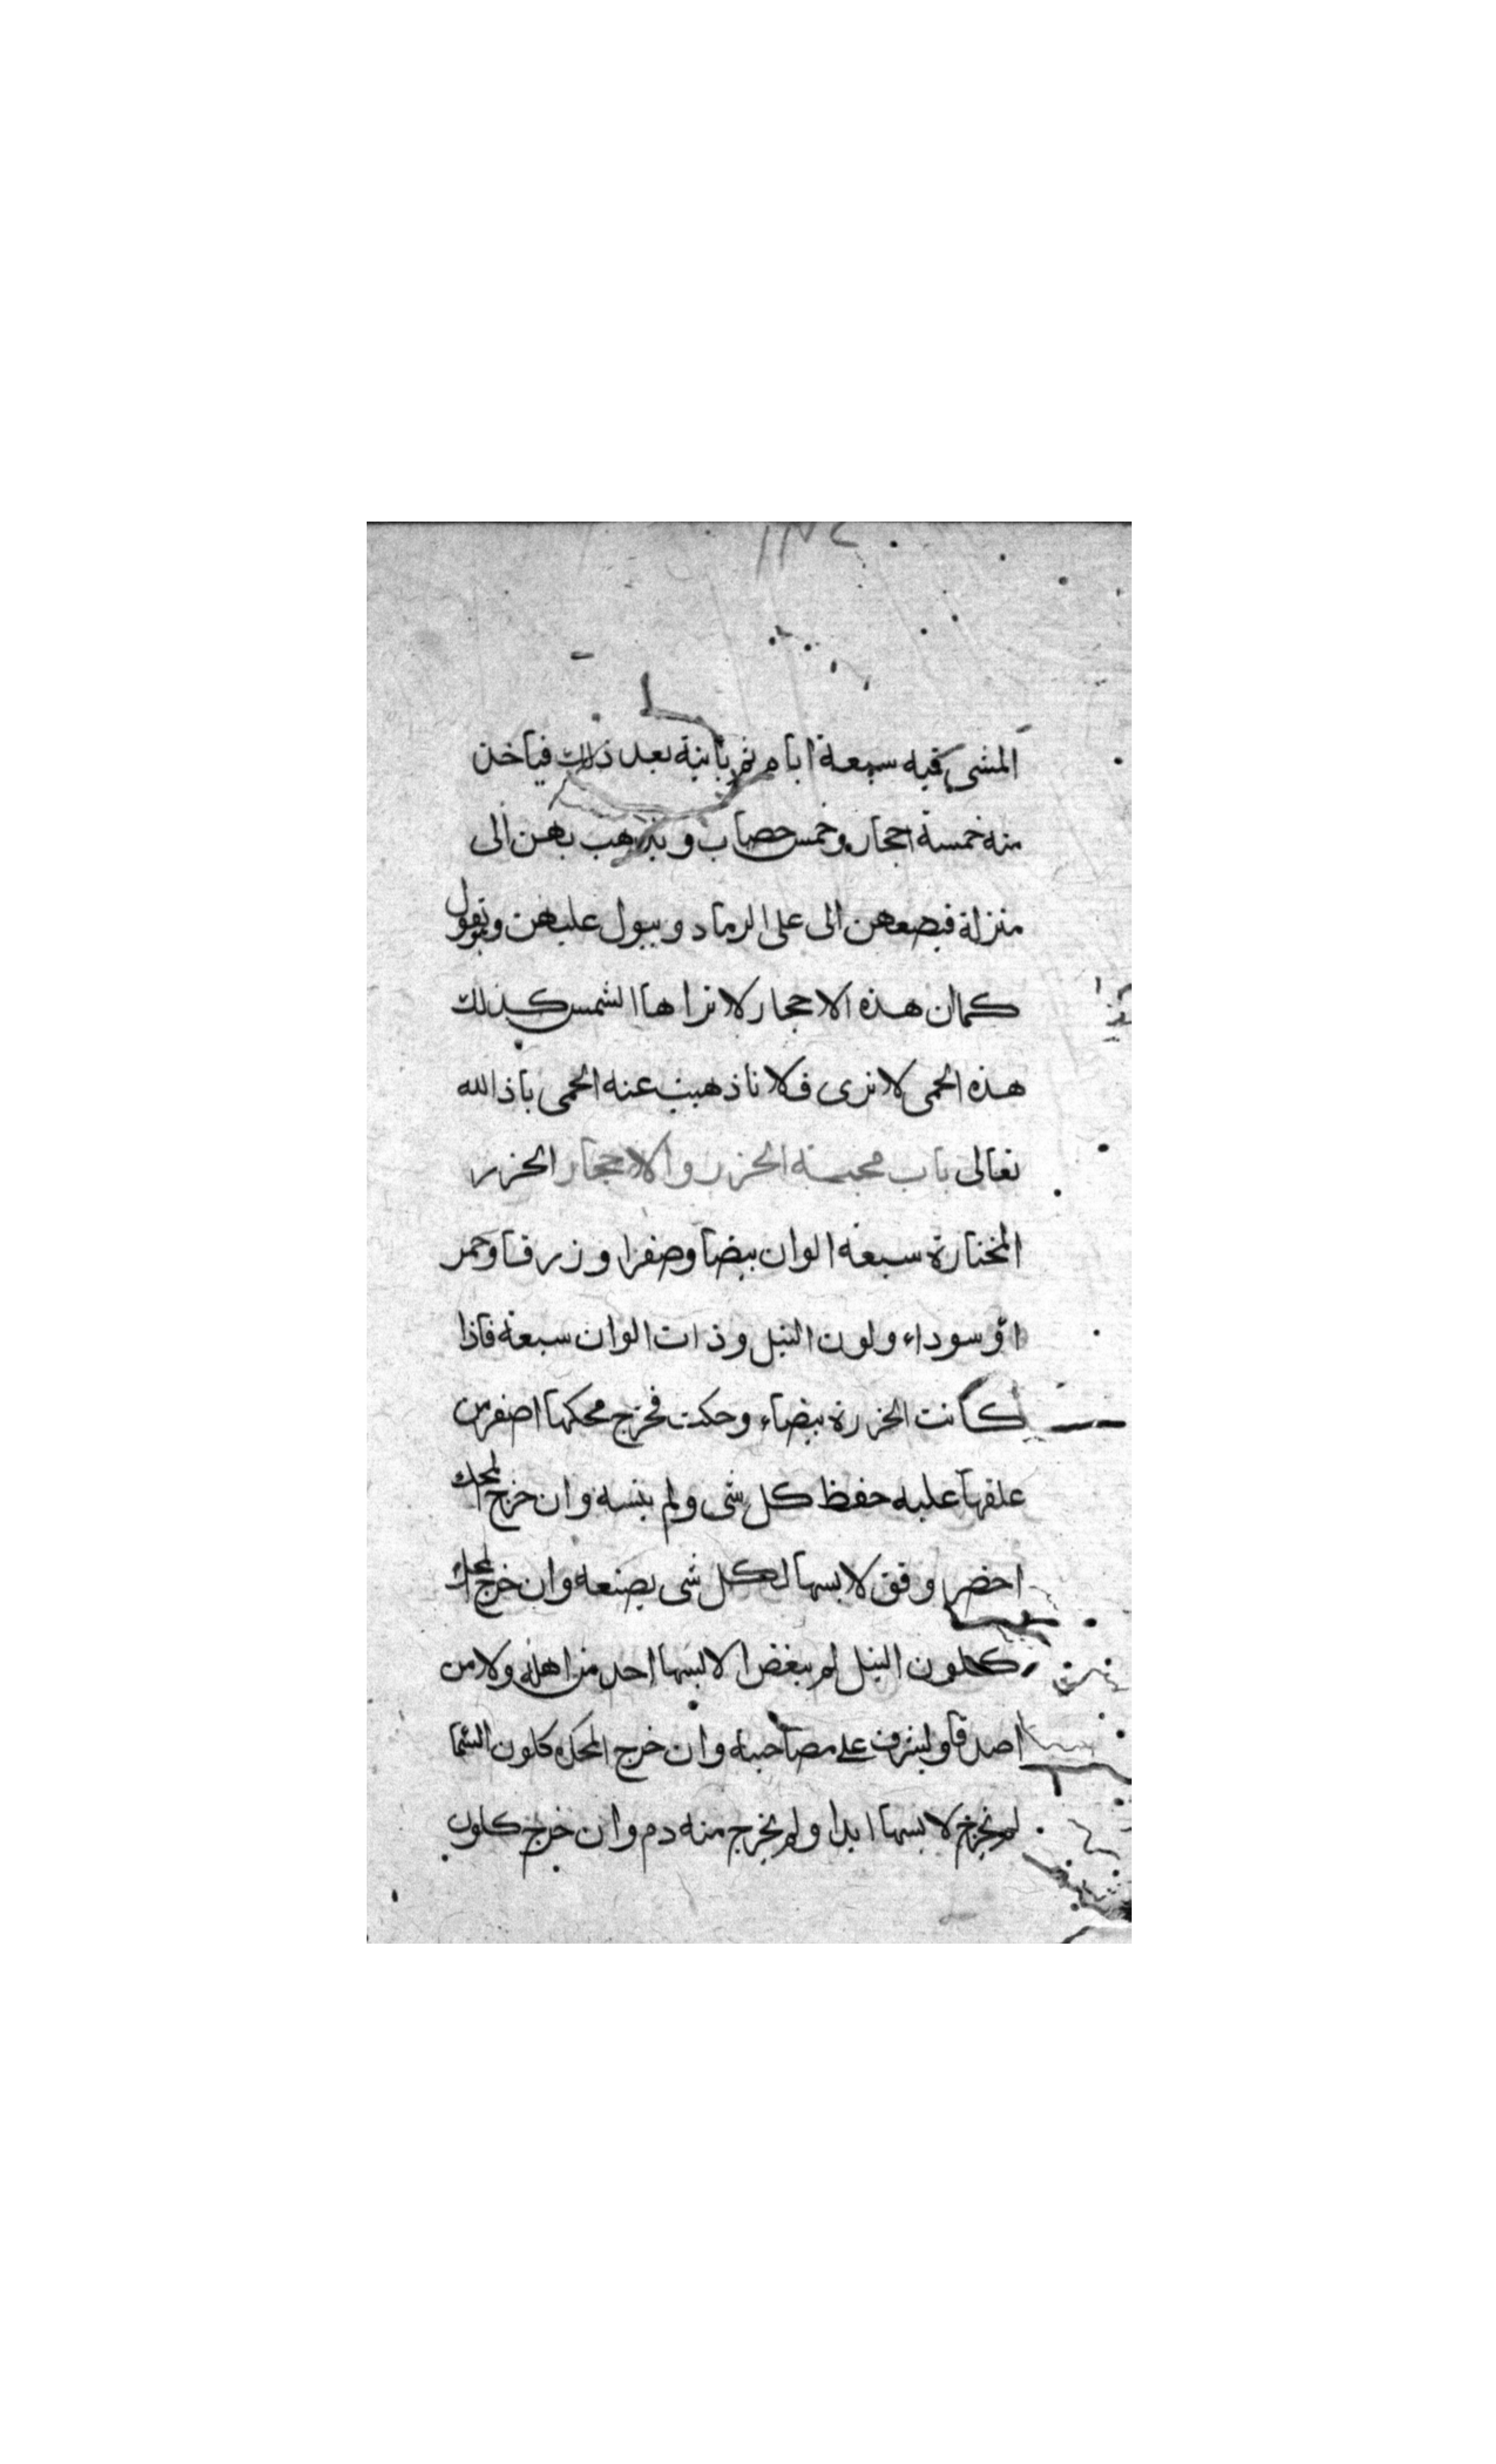 المشي فيه سبعة ايام ثم ياتيه بعد ذلك فياخذ
منه خمسة احجار وخمس حصاب ويذهب بهن الى
منزلة فيضعهن الى على الرماد ويبول عليهن ويقول
كمان هذه الاحجار لا تراها الشمس كذلك
هذه الحمى لا ترى فلانا ذهبت عنه الحمى باذ الله
تعالى باب محبسة الخزر والاحجار الخزر
المختارة سبعه الوان بيضا وصفرا وزرقا وحمر
او سوداء ولون النيل وذات الوان سبعة فاذا
كانت الخزرة بيضاء وحكت فخرج محكها اصفر من
علقها عليه حفظ كل شى ولم ينسه وان خرج المحك
اخضر وفق لابسها لكل شى يصنعه وان خرج المحك
كلون النيل لم يبغض لابسها احد من اهله ولا من
اصدقا وليشرف على مصاحبه وان خرج المحك كلون السما
لم يجرح لابسها ابدا ولم يخرج منه دم وان خرج كلون